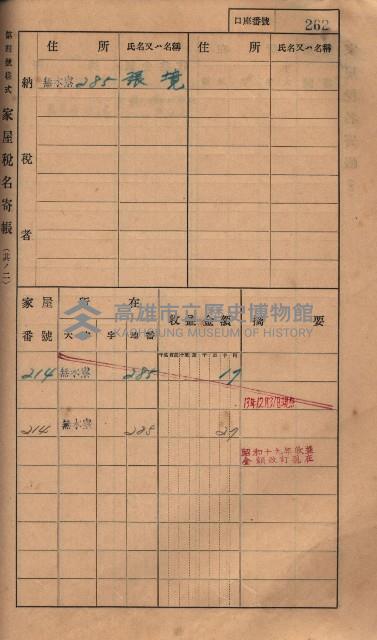 口座番號 262
第四號樣式 家屋稅名寄帳 (其ノ二)
住所 氏名又ハ名稱 住所 氏名又ハ名稱
納稅者
無水寮 285 張境
家屋番號 所在 收益金額 摘要
大字 字 地番
高雄市立歷史博物館
KAOHSIUNG MUSEUM OF HISTORY
214 無水寮 285 17
214 無水寮 285 27
昭和十九年收益
金額改訂